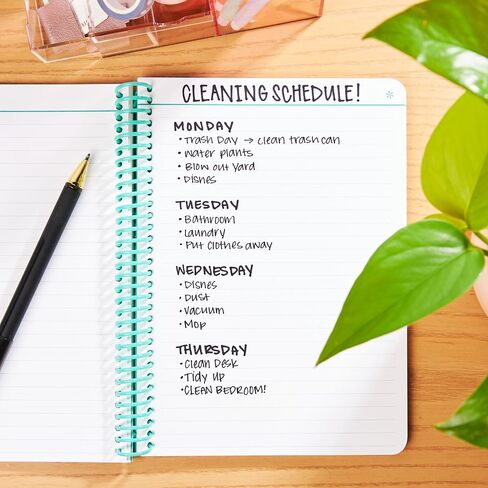 CLEANING SCHEDULE! *
MONDAY
• Trash Day → clean trash can
• water plants
• Blow out yard
• Dishes
TUESDAY
• Bathroom
• Laundry
• Put clothes away
WEDNESDAY
• Dishes
• Dust
• Vacuum
• Mop
THURSDAY
• Clean Desk
• Tidy Up
• CLEAN BEDROOM!